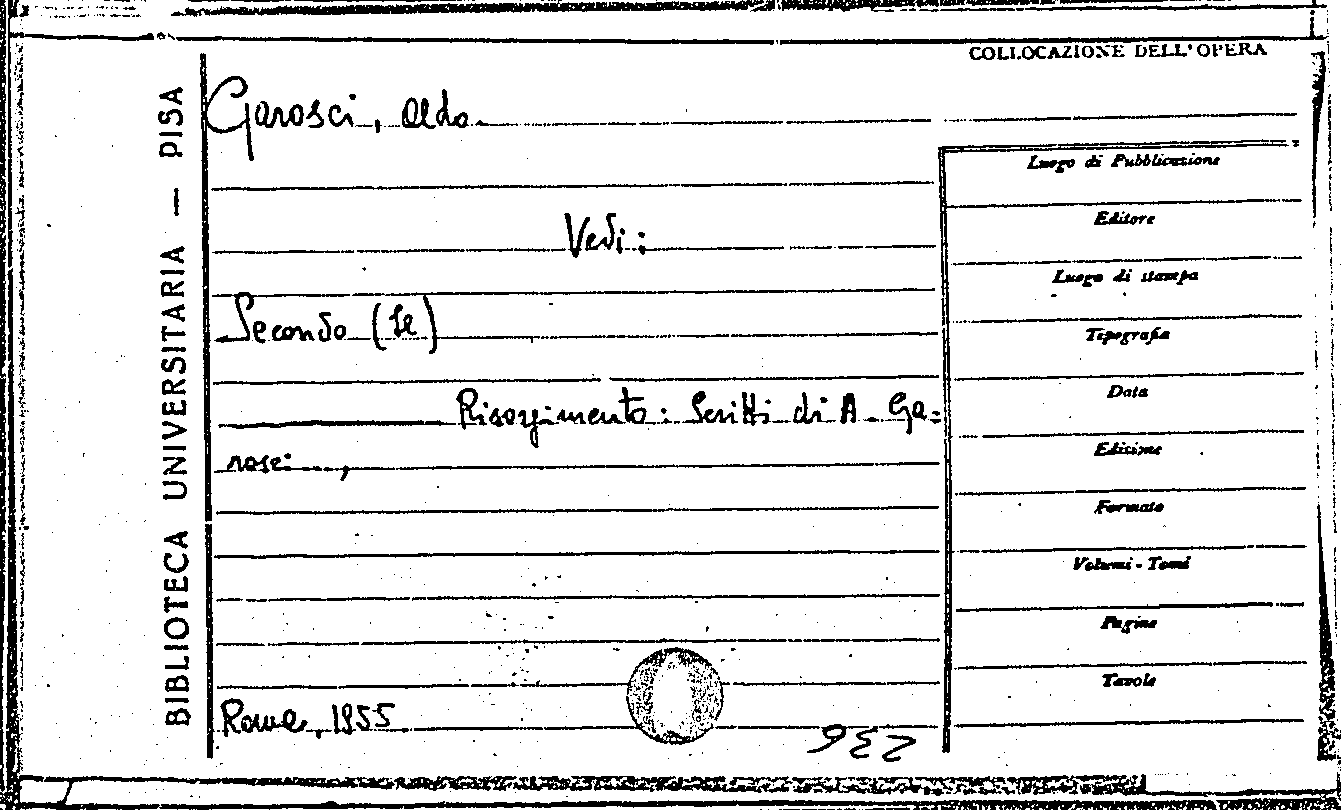 COLLOCAZIONE DELL'OPERA
BIBLIOTECA UNIVERSITARIA — PISA
Garosci, Aldo.
Vedi:
Secondo (Il)
Risorgimento: Scritti di A. Ga=
rosci...,
Roma, 1955
236
Luogo di Pubblicazione
Editore
Luogo di stampa
Tipografia
Data
Edizione
Formato
Volumi - Tomi
Pagine
Tavole